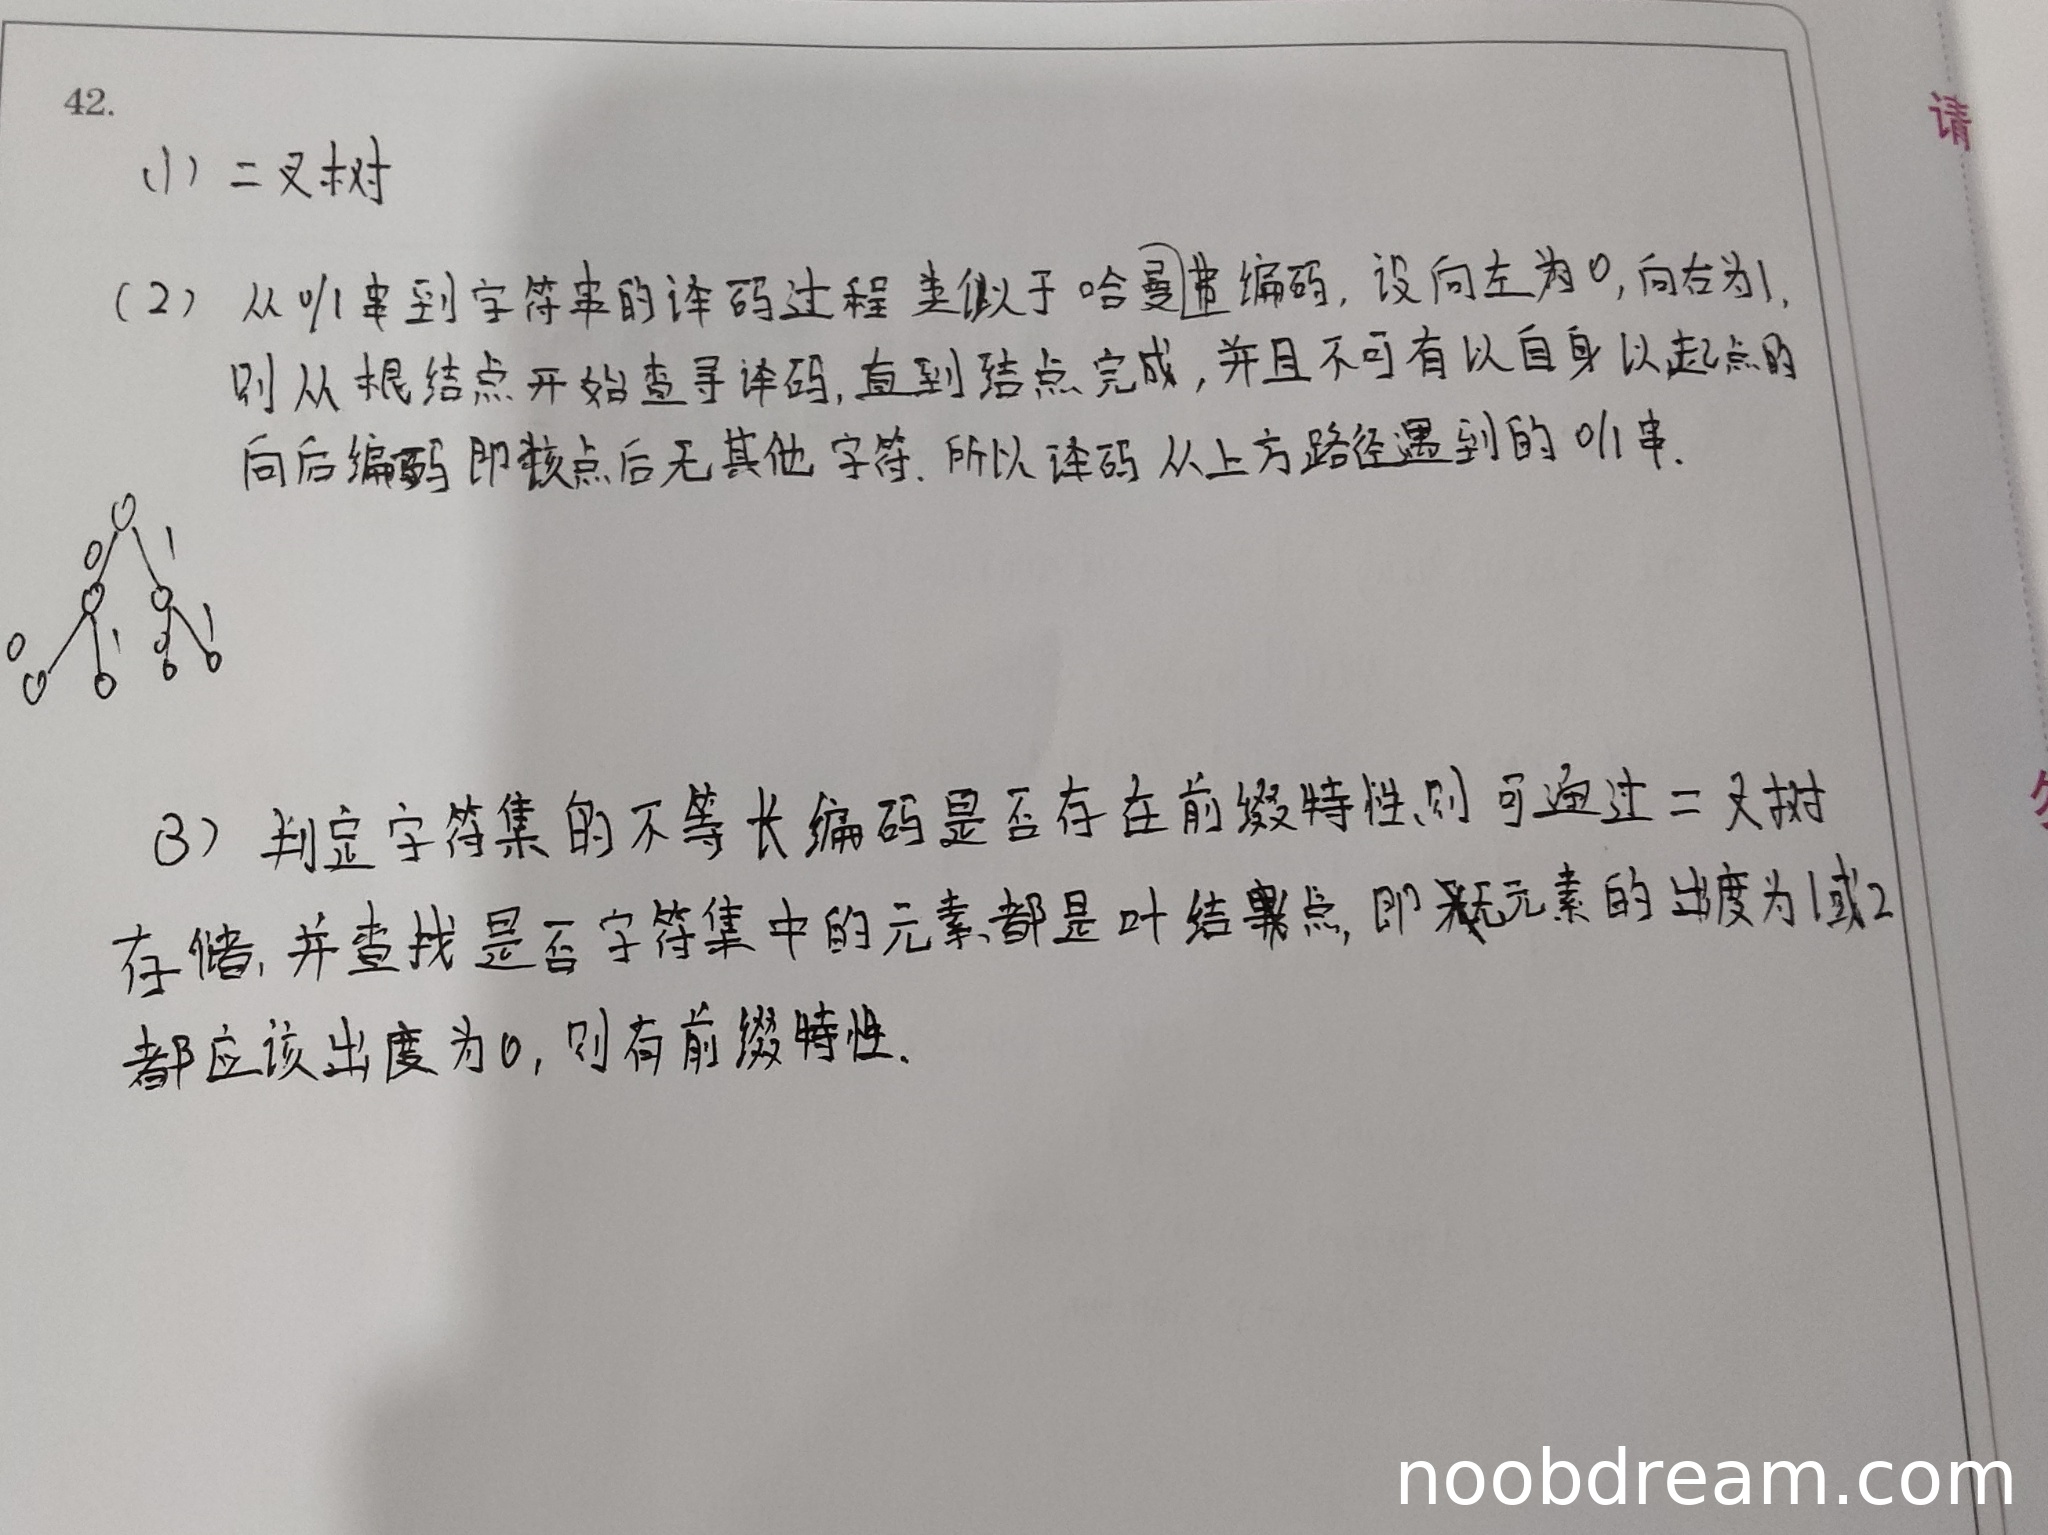 42.
(1) 二叉树
(2) 从0/1串到字符串的译码过程类似于哈曼弗编码, 设向左为0, 向右为1,
则从根结点开始查寻译码, 直到结点完成, 并且不可有以自身以起点的
向后编码即该点后无其他字符. 所以译码从上方路径遇到的0/1串.
0 1
0 1 0 1
(3) 判定字符集的不等长编码是否存在前缀特性, 则可通过二叉树
存储, 并查找是否字符集中的元素都是叶结点, 即无元素的出度为1或2
都应该出度为0, 则有前缀特性.
请
noobdream.com